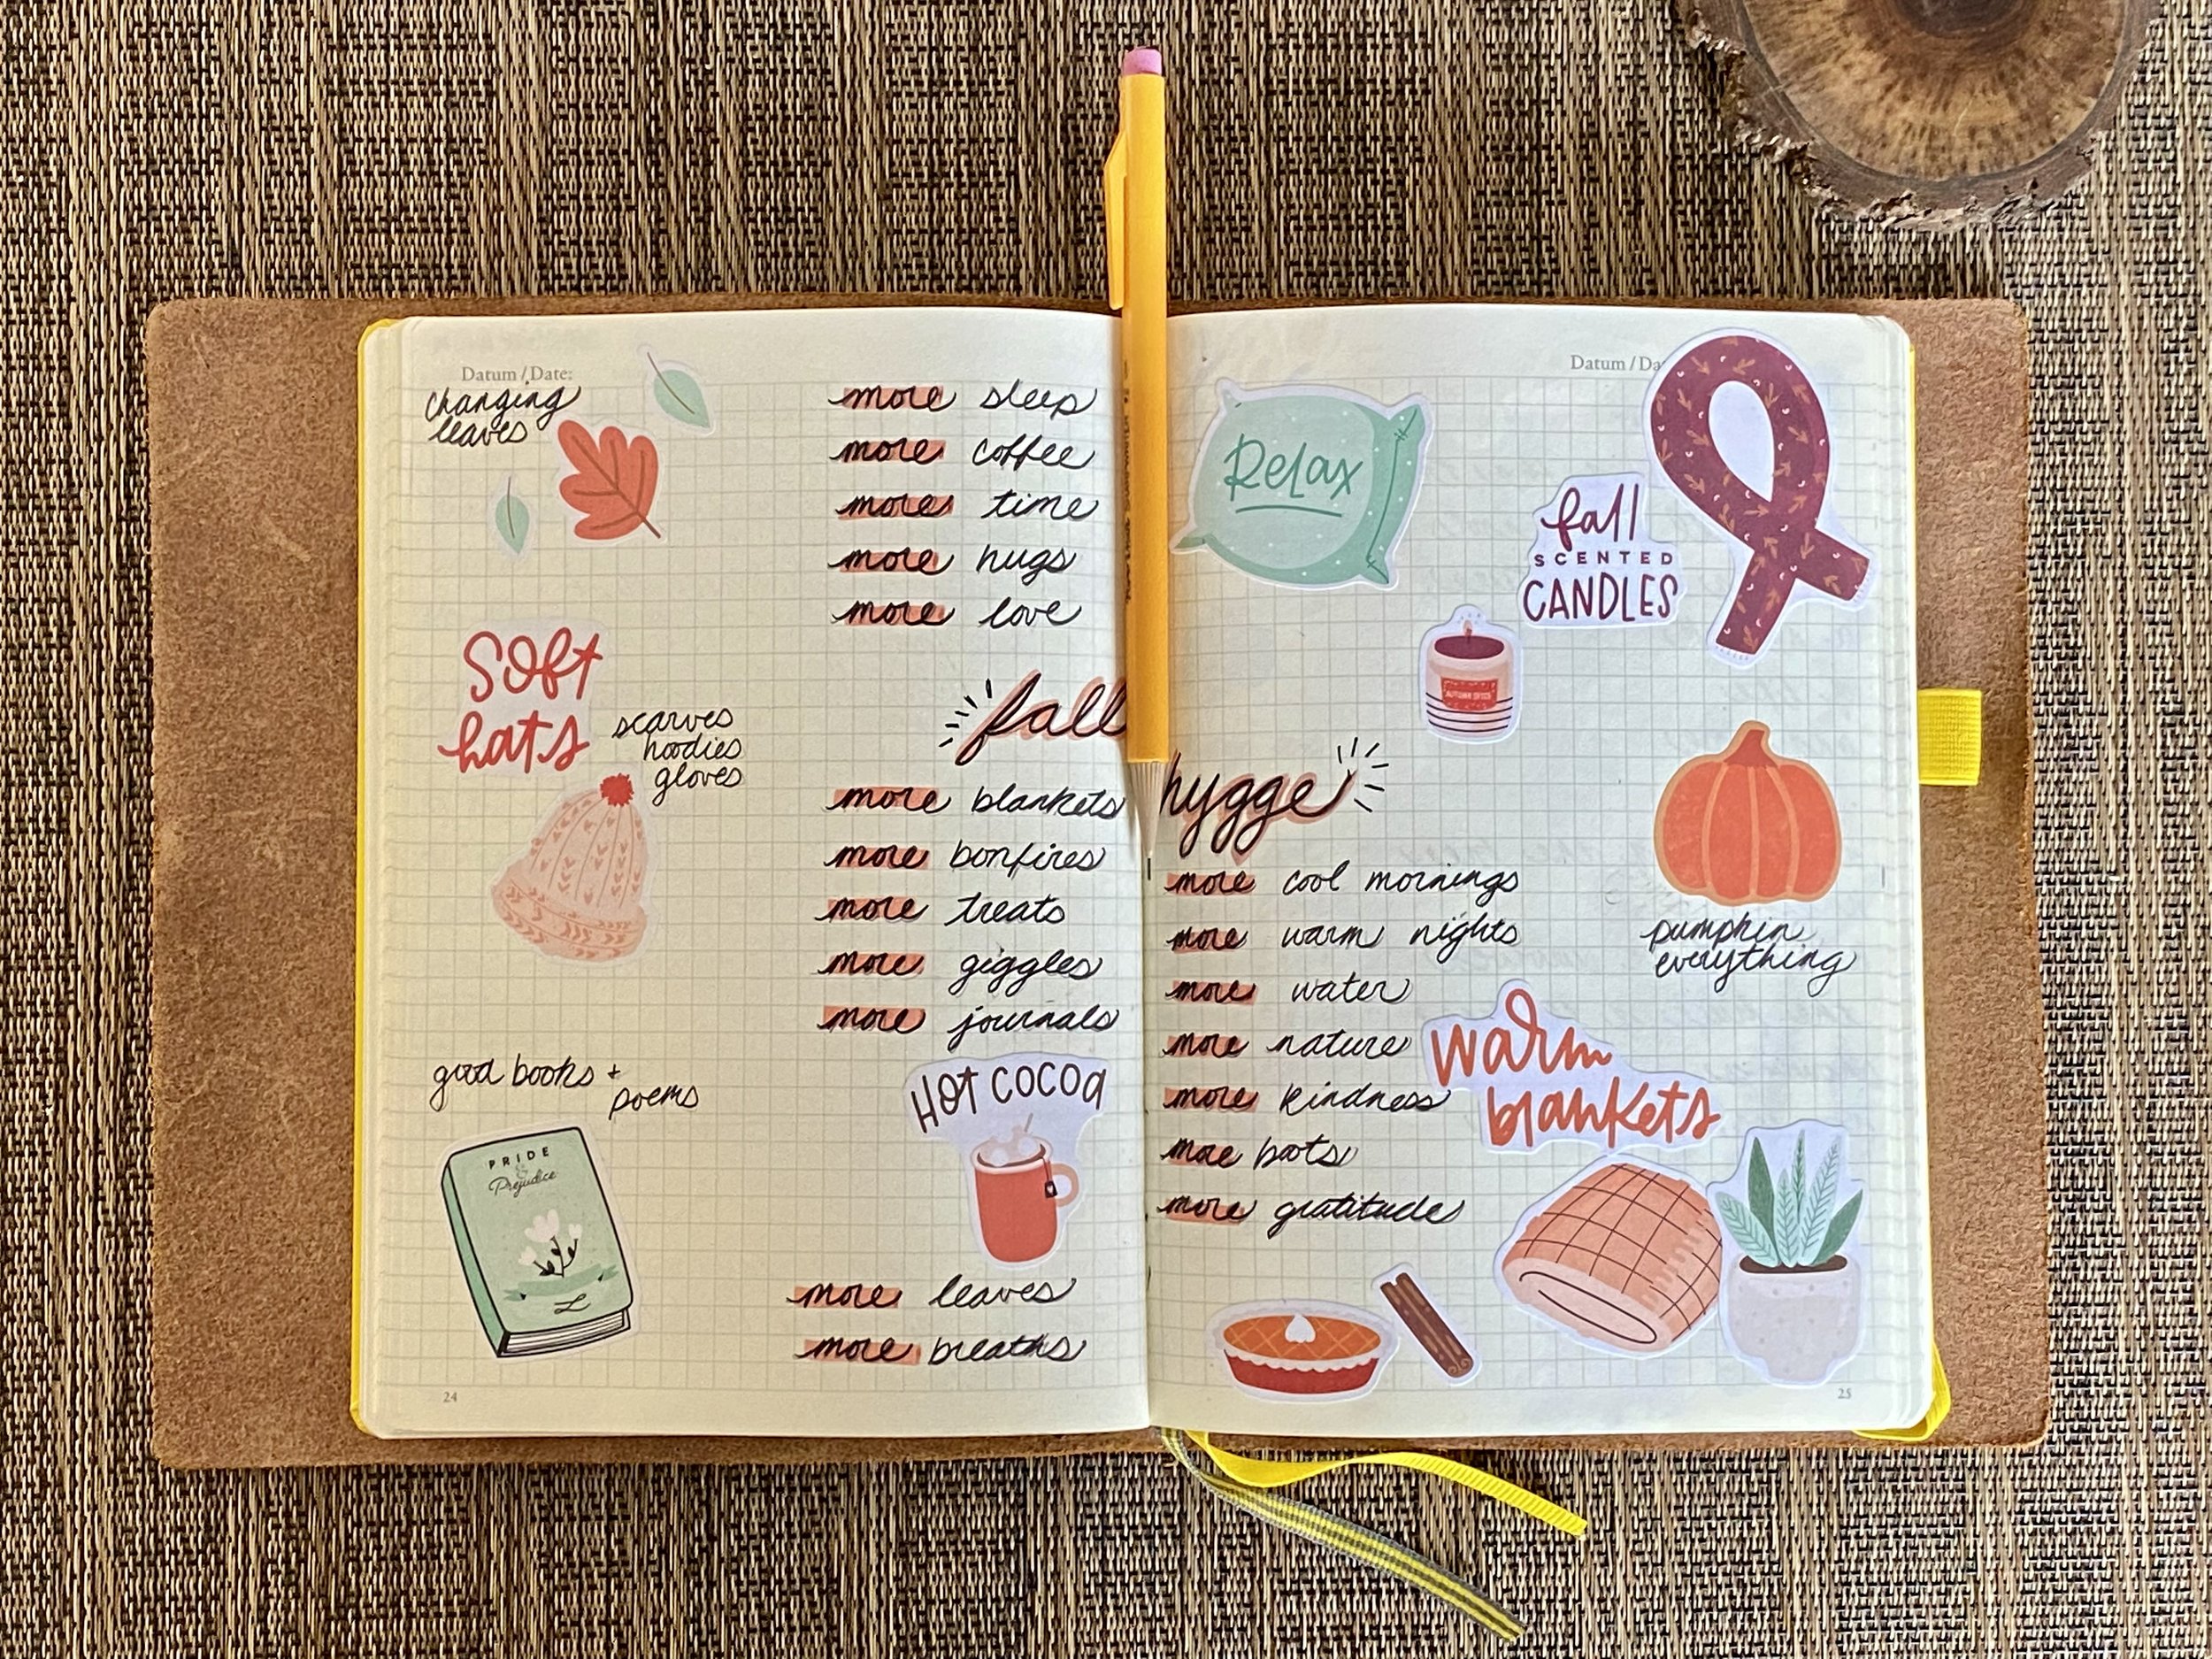 Datum / Date:
changing
leaves
more sleep
more coffee
more time
more hugs
more love
soft
hats
scarves
hoodies
gloves
fall
more blankets
more bonfires
more treats
more giggles
more journals
good books +
poems
PRIDE
&
Prejudice
HOT COCOA
more leaves
more breaths
24
Datum / Da
Relax
fall
SCENTED
CANDLES
AUTUMN SPICE
hygge
more cool mornings
more warm nights
more water
more nature
more kindness
more boots
more gratitude
pumpkin
everything
warm
blankets
25